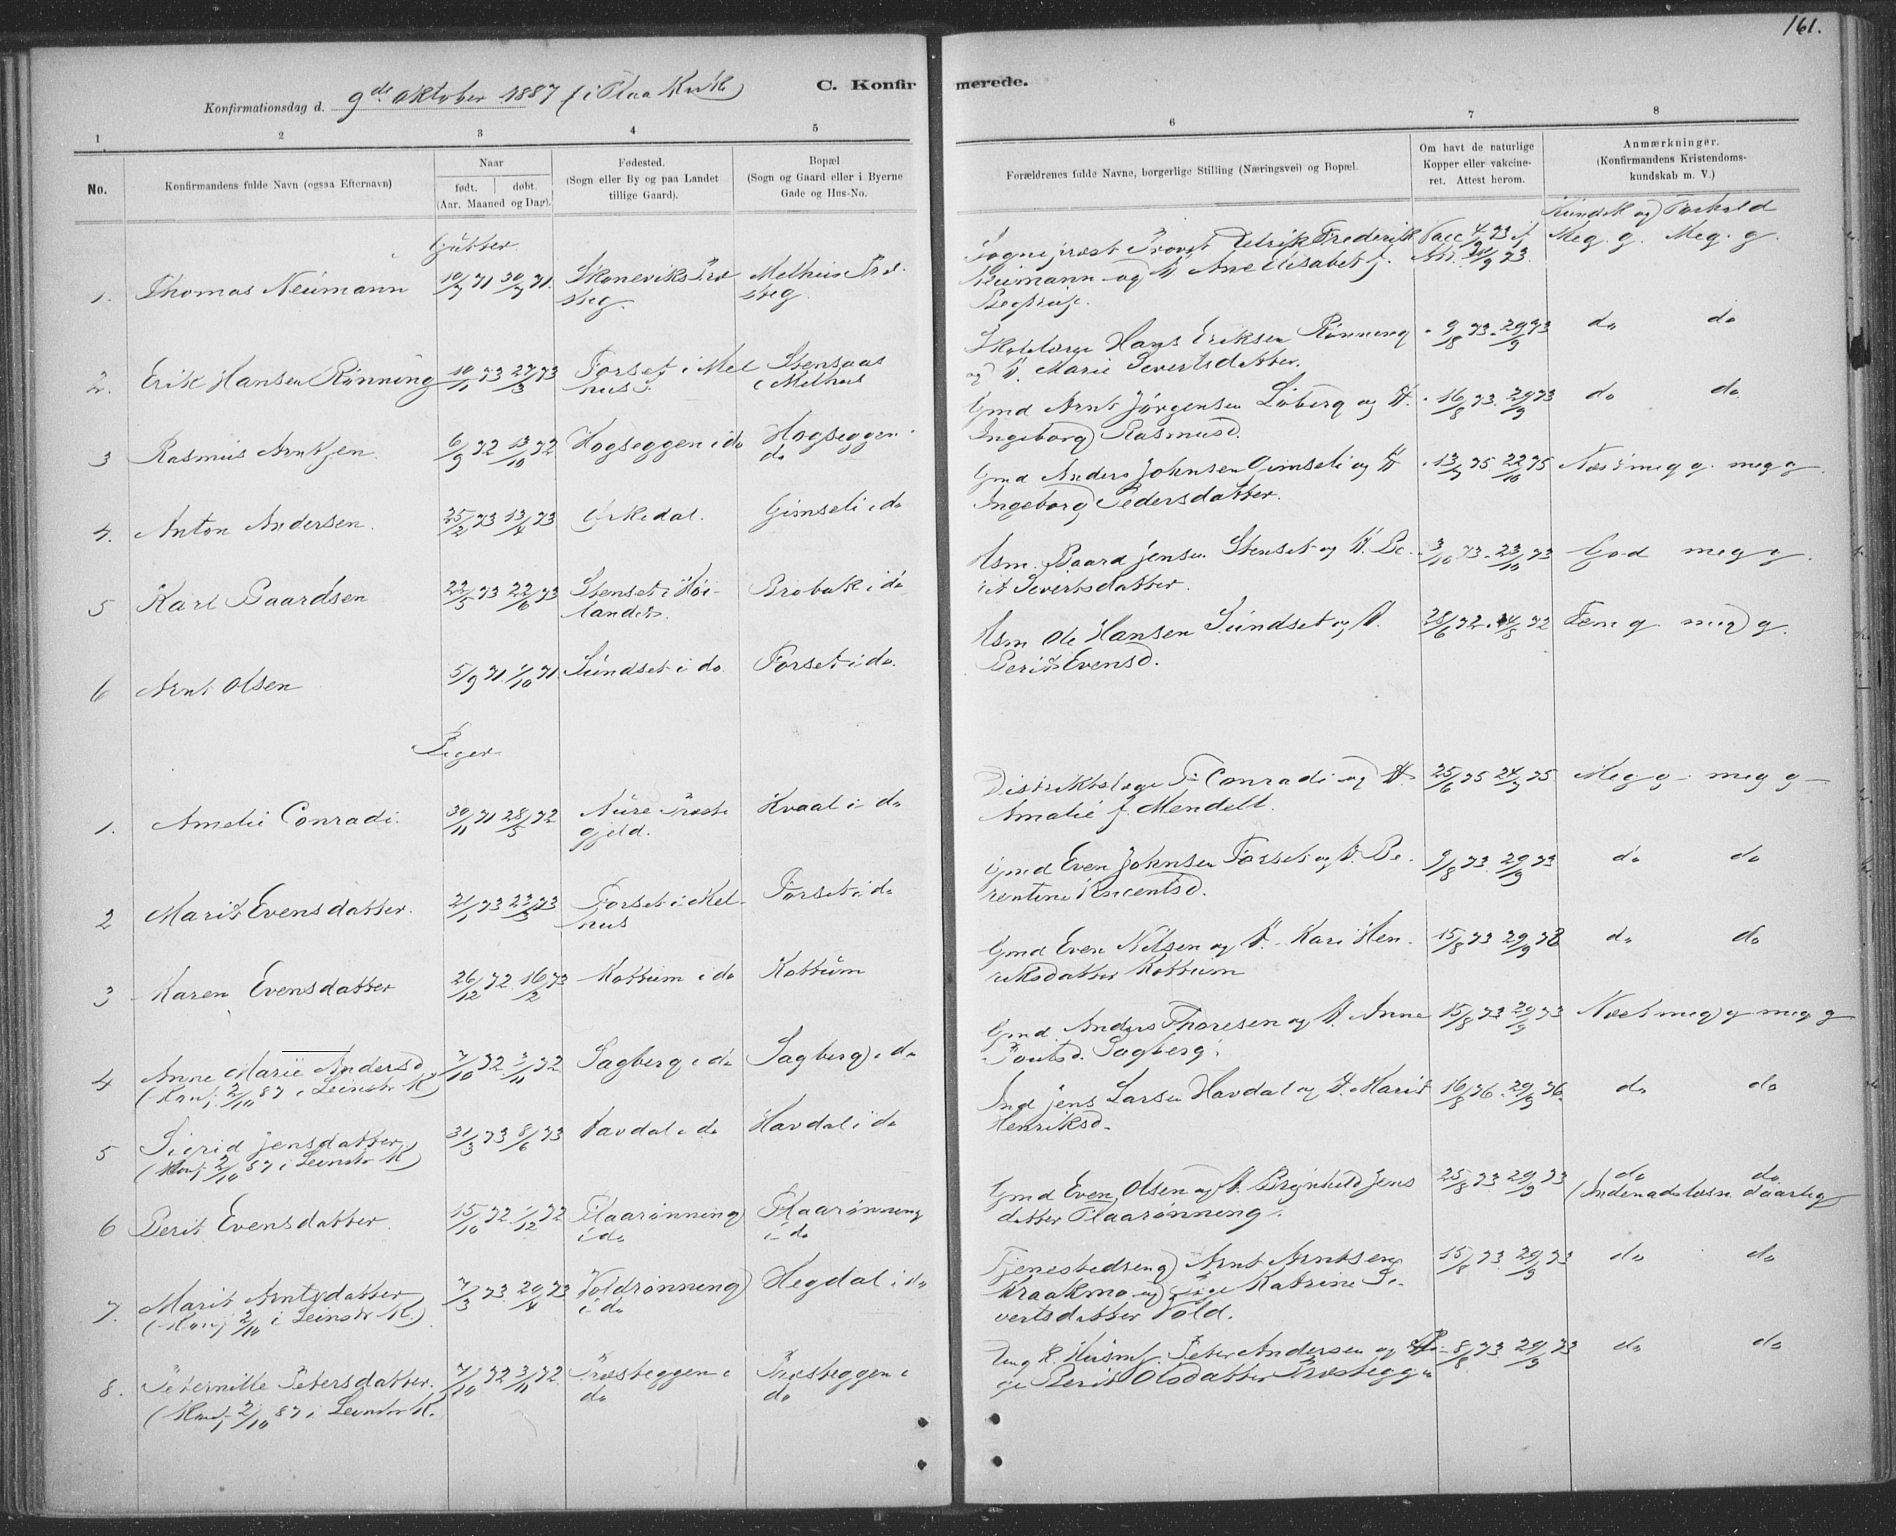 161.
Konfirmationsdag d. 9de Oktober 1887 i Flaa Kirke
C. Konfirmerede.
1. 2 3 4 5 6 7 8
No.
Konfirmandens fulde Navn (ogsaa Efternavn)
Naar
født. døbt.
(Aar, Maaned og Dag).
Fødested.
(Sogn eller By og paa Landet
tillige Gaard).
Bopæl
(Sogn og Gaard eller i Byerne
Gade og Hus-No.
Forældrenes fulde Navne, borgerlige Stilling (Næringsvei) og Bopæl.
Om havt de naturlige
Kopper eller vakcine-
ret. Attest herom.
Anmærkninger.
(Konfirmandens Kristendoms-
kundskab m. V.)
Kundsk og Forhold
Gutter
1. Thomas Neumann 10/7 71 30/7 71. Skoneviks Præ Melhus Præ-
steg. steg.
Sogneprest Provst Ulrik Frederik Vacc 4/9 73 Meg. g. Meg. g.
Neumann og H Ane Elisabet f.
2. Erik Hansen Rønning 10/11 73 27/3 73 Forset i Mel Stensaas
hus i Melhus
Hans Eriksen Rønning 9/8 73. 29/9 73 do do
og H. Marie Sivertsdatter.
3 Rasmus Arntsen 6/9 72 13/10 72 Hogseggen i do Hogseggen i
do
Gmd Arnt Jørgensen Løberg og H. 16/8 73. 29/9 73 do do
Ingeborg Rasmusd.
4. Anton Andersen. 25/2 73 13/4 73 Orkedal. Gimseli i do
Gmd Anders Johnsen Gimseli og H 13/9 75 22/10 75 Næst meg g. meg g.
Ingeborg Pedersdatter.
5 Karl Baardsen 22/5 73 22/6 73 Stenset i Høi- Brobak i do
landet.
Hsm. Baard Jensen Stenset og H. Be- 3/10 73. 23/10 73 God meg g.
rit Sivertsdatter.
6 Arnt Olsen 5/9 71 1/10 71 Sundset i do Forset i do.
Hsm Ole Hansen Sundset og H. 28/6 72. 14/8 72 Tem g. meg g.
Berit Evensd.
Piger
1. Amelie Conradi. 30/11 71 28/5 72 Aure Præste Kvaal i do
gjeld.
Distriktslæge F. Conradi og H 25/6 75 24/9 75 Meg g. meg g
Amalie f. Mendelt.
2 Marit Evensdatter. 21/1 73 23/3 73 Forset i Mel- Forset i do
hus
Gmd Even Johnsen Forset og H. Be- 9/8 73. 29/9 73 do do
rentine Vincentsd.
3 Karen Evensdatter 26/12 72 16/2 73 Kottum i do Kottum
Gmd Even Nilsen og H. Kari Hen- 15/8 73 29/9 73 do do
riksdatter Kottum
4 Anne Marie Andersd 7/10 72 3/11 72 Sagberg i do Sagberg i do
(Konf. 2/10 87 i Leinstr K)
Gmd Anders Thoresen og H. Anne 15/8 73 29/9 73 Næst meg g meg g
Sagberg.
5 Sigrid Jensdatter 31/3 73 8/6 73 Havdal i do Havdal i do
(Konf. 2/10 87 i Leinstr K)
Ind Jens Larsen Havdal og H. Marit 16/8 76. 29/9 76. do do
Henriksd.
6 Berit Evensdatter. 15/10 72 1/12 72 Flaarønning Flaarønning
i do i do
Gmd Even Olsen og H. Brynhild Jens 25/8 73 29/9 73 do do
datter Flaarønning. (Indenadslæsn. daarlig)
7. Marit Arntsdatter 7/3 73 20/4 73 Voldrønning Hegdal i do
(Konf 2/10 i Leinstr K.) i do
Tjenestedreng Arnt Arntsen 15/8 73 29/9 73 do do
Kraakmo og Pige Katrine Si-
vertsdatter Vold.
8. Peternille Petersdatter. 7/10 72 3/11 72. Præsteggen i Præsteggen i
(Konf. 2/10 87 i Leinstr K. do do
Ung K. Husmf. Peter Andersen og Pi- 8/8 73 29/9 73 do do
ge Berit Olsdatter Præstegg